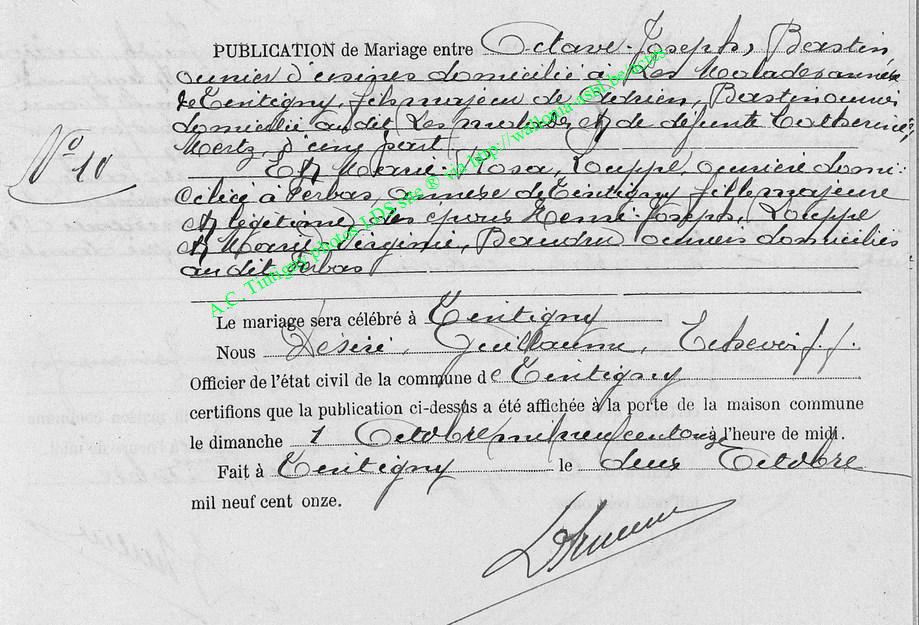 PUBLICATION de Mariage entre Octave-Joseph, Bastin
ouvrier d'usines domicilié à Les Malades annexe
de Tintigny, fils majeur de Adrien, Bastin ouvrier
domicilié au dit Les Malades et de défunte Catherine
Mertz, d'une part
N° 10
Et Marie Rosa, Louppe, ouvrière domi-
ciliée à Perbas, annexe de Tintigny fille majeure
et légitime des époux Henri-Joseph, Louppe
et Marie Virginie, Beaudru ouvriers domiciliés
au dit Perbas
A.C. Tintigny photos LDS site ® via http://wallonia-asbl.be/actes
Le mariage sera célébré à Tintigny
Nous Désiré, Guillaume, f. f.
Officier de l'état civil de la commune de Tintigny
certifions que la publication ci-dessus a été affichée à la porte de la maison commune
le dimanche 1 Octobre mil neuf cent onze à l'heure de midi.
Fait à Tintigny le deux Octobre
mil neuf cent onze.